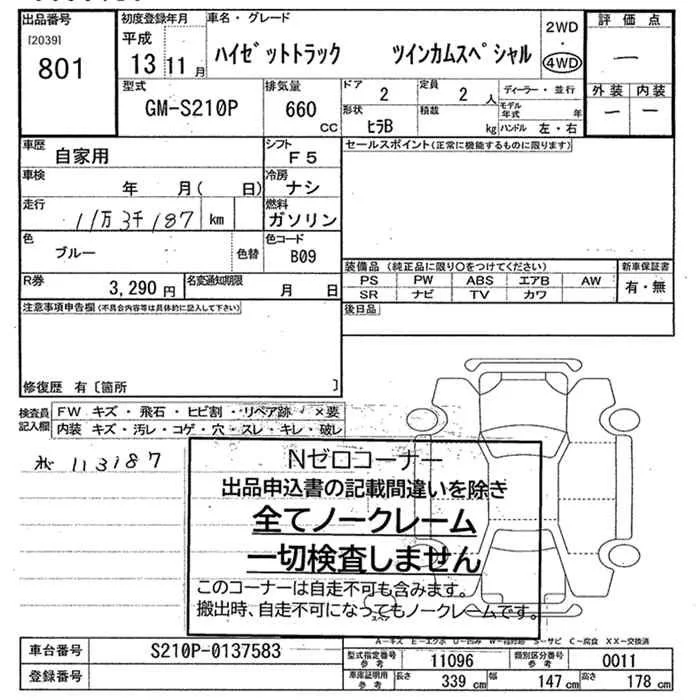 出品番号 初度登録年月 車名・グレード 2WD 評価点
[2039] 平成 ・
801 13 11月 ハイゼットトラック ツインカムスペシャル 4WD —
型式 排気量 ドア 2 定員 2人 ディーラー・並行 外装 内装
GM-S210P 660 cc 形状 ヒラB 積載 kg モデル年式 年 — —
ハンドル 左・右
車歴 自家用 シフト F5 セールスポイント(正常に機能するものに限ります)
車検 年 月( 日) 冷房 ナシ
走行 11万3千187 km 燃料 ガソリン
色 ブルー 色替 色コード B09
装備品(純正品に限り○をつけてください) 新車保証書
R券 3,290円 名変通知期限 月 日 PS PW ABS エアB AW 有・無
SR ナビ TV カワ
注意事項申告欄(不具合内容等は具体的に記入して下さい) 後日品
修復歴 有〔箇所 〕
検査員記入欄 FW キズ・飛石・ヒビ割・リペア跡・×要
内装 キズ・汚レ・コゲ・穴・スレ・キレ・破レ
113187
Nゼロコーナー
出品申込書の記載間違いを除き
全てノークレーム
一切検査しません
このコーナーは自走不可も含みます。
搬出時、自走不可になってもノークレームです。
スペア
A-キズ E-エクボ U-凹み W-補修跡 S-サビ C-腐食 XX-交換済
車台番号 S210P-0137583 型式指定番号参考 11096 類別区分番号参考 0011
登録番号 車庫証明用参考 長さ 339cm 幅 147cm 高さ 178cm